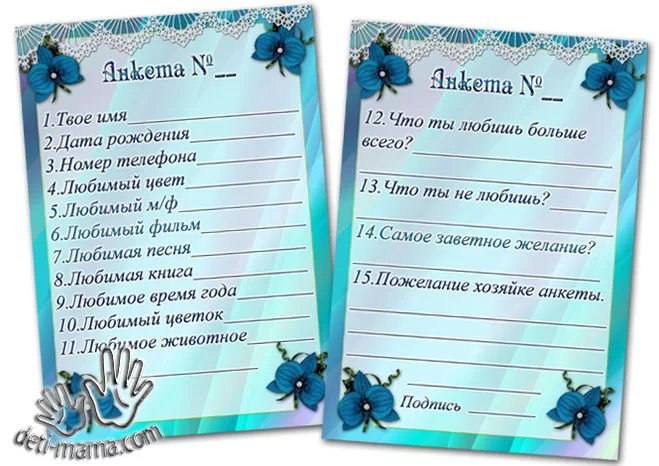 Анкета №__
1.Твое имя_______________
2.Дата рождения__________
3.Номер телефона_________
4.Любимый цвет__________
5.Любимый м/ф___________
6.Любимый фильм_________
7.Любимая песня__________
8.Любимая книга__________
9.Любимое время года______
10.Любимый цветок________
11.Любимое животное______
_______________
deti-mama.com
Анкета №__
12.Что ты любишь больше
всего?_______________
_______________
13.Что ты не любишь?______
_______________
14.Самое заветное желание?
_______________
15.Пожелание хозяйке анкеты.
_______________
_______________
_______________
_______________
Подпись ________